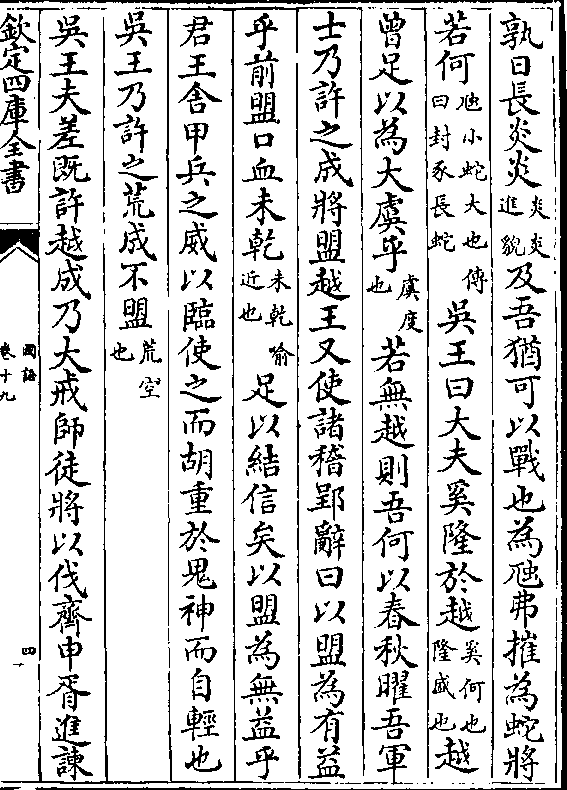 孰日長炎炎炎炎進貌及吾猶可以戰也為虺弗摧為蛇將
若何虺小蛇大也傳曰封豕長蛇吳王曰大夫奚隆於越奚何也隆盛也越
曾足以為大虞乎虞度也若無越則吾何以春秋曜吾軍
士乃許之成將盟越王又使諸稽郢辭曰以盟為有益
乎前盟口血未乾未乾喻近也足以結信矣以盟為無益乎
君王舍甲兵之威以臨使之而胡重於鬼神而自輕也
吳王乃許之荒成不盟荒空也
吳王夫差既許越成乃大戒師徒將以伐齊申胥進諫
欽定四庫全書
國語
卷十九
四